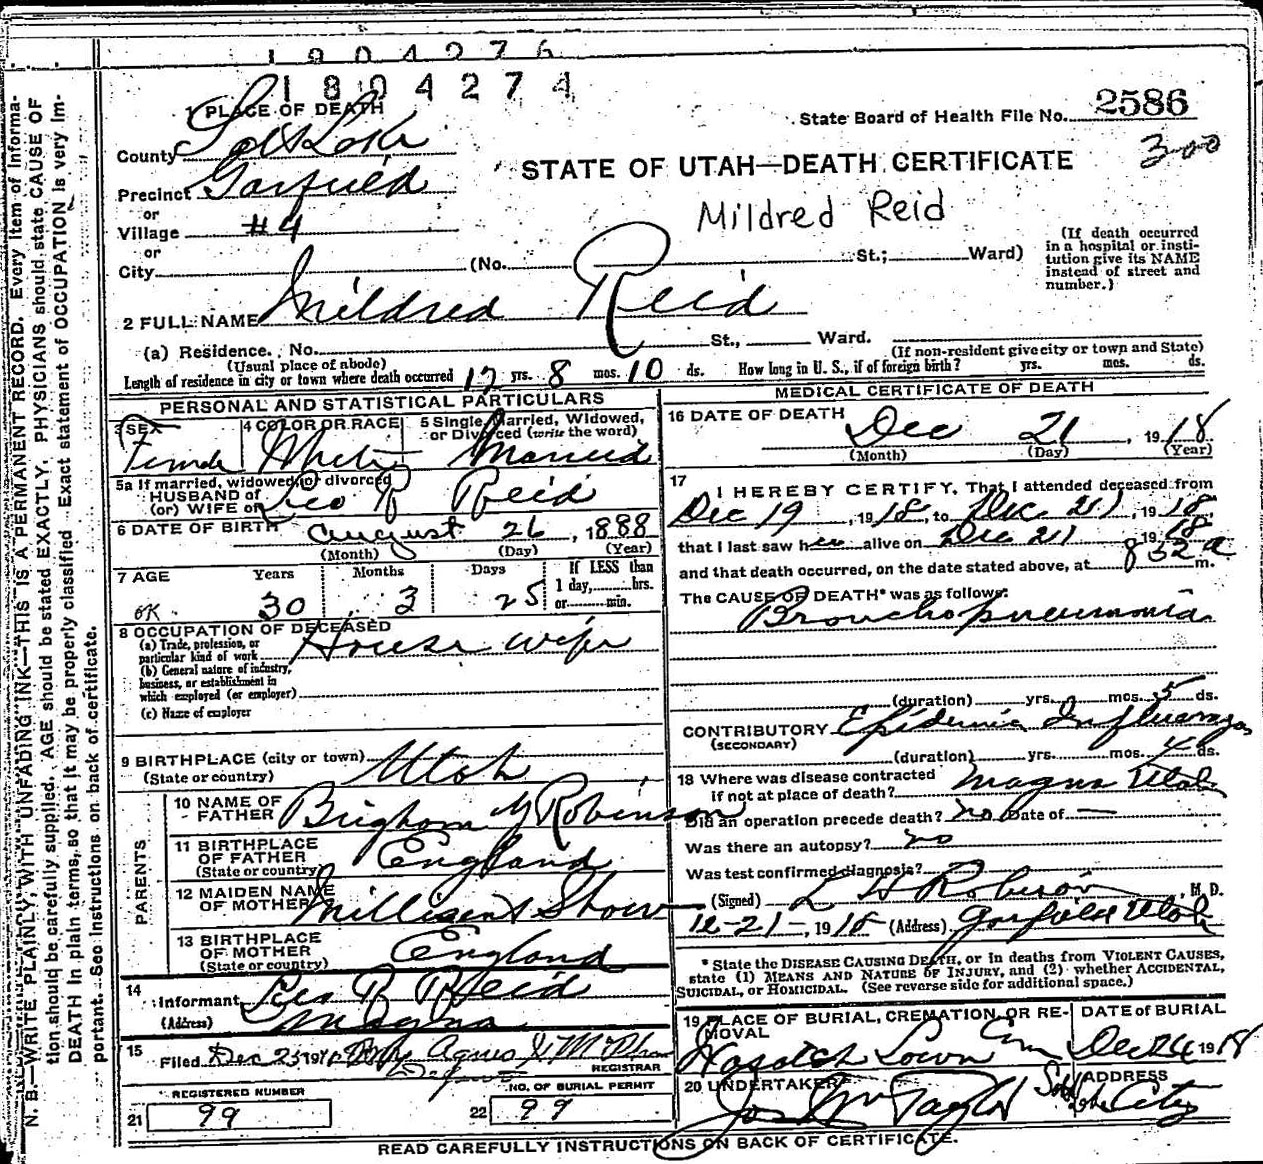 1904276
1804274
1 PLACE OF DEATH
State Board of Health File No. 2586
300
County Salt Lake
STATE OF UTAH—DEATH CERTIFICATE
Precinct Garfield
or
Village #4
Mildred Reid
or
City (No. St.; Ward)
(If death occurred in a hospital or institution give its NAME instead of street and number.)
2 FULL NAME Mildred Reid
(a) Residence. No. St., Ward.
(Usual place of abode) (If non-resident give city or town and State)
Length of residence in city or town where death occurred 12 yrs. 8 mos. 10 ds. How long in U. S., if of foreign birth? yrs. mos. ds.
PERSONAL AND STATISTICAL PARTICULARS
3 SEX Female
4 COLOR OR RACE White
5 Single, Married, Widowed, or Divorced (write the word) Married
5a If married, widowed, or divorced
HUSBAND of
(or) WIFE of Leo R Reid
6 DATE OF BIRTH August 26, 1888
(Month) (Day) (Year)
7 AGE Years Months Days If LESS than
1 day, hrs.
or min.
OK 30 3 25
8 OCCUPATION OF DECEASED
(a) Trade, profession, or particular kind of work House wife
(b) General nature of industry, business, or establishment in which employed (or employer)
(c) Name of employer
9 BIRTHPLACE (city or town)
(State or country) Utah
PARENTS
10 NAME OF FATHER Brigham Y Robinson
11 BIRTHPLACE OF FATHER
(State or country) England
12 MAIDEN NAME OF MOTHER Millicent
13 BIRTHPLACE OF MOTHER
(State or country) England
14 Informant Leo R Reid
(Address) Magna
15 Filed Dec 23 1918 Agnes
REGISTRAR
REGISTERED NUMBER
21 99
NO. OF BURIAL PERMIT
22 99
MEDICAL CERTIFICATE OF DEATH
16 DATE OF DEATH Dec 21, 1918
(Month) (Day) (Year)
17 I HEREBY CERTIFY, That I attended deceased from
Dec 19, 1918, to Dec. 21, 1918,
that I last saw her alive on Dec 21, 1918
and that death occurred, on the date stated above, at 8 32 a m.
The CAUSE OF DEATH* was as follows:
Bronchopneumonia
(duration) yrs. mos. 5 ds.
CONTRIBUTORY Epidemic Influenza
(SECONDARY)
(duration) yrs. mos. 4 ds.
18 Where was disease contracted
if not at place of death? Magna Utah
Did an operation precede death? no Date of —
Was there an autopsy? no
Was test confirmed diagnosis?
(Signed) L H , M. D.
12-21-, 1918 (Address) Garfield Utah
* State the DISEASE CAUSING DEATH, or in deaths from VIOLENT CAUSES, state (1) MEANS AND NATURE OF INJURY, and (2) whether ACCIDENTAL, SUICIDAL, or HOMICIDAL. (See reverse side for additional space.)
19 PLACE OF BURIAL, CREMATION, OR REMOVAL Wasatch Lawn Cem
DATE OF BURIAL Dec 24 1918
20 UNDERTAKER Jos Wm Taylor
ADDRESS Salt Lake City
READ CAREFULLY INSTRUCTIONS ON BACK OF CERTIFICATE.
N. B.—WRITE PLAINLY, WITH UNFADING INK—THIS IS A PERMANENT RECORD. Every item of information should be carefully supplied. AGE should be stated EXACTLY. PHYSICIANS should state CAUSE OF DEATH in plain terms, so that it may be properly classified. Exact statement of OCCUPATION is very important. See Instructions on back of certificate.